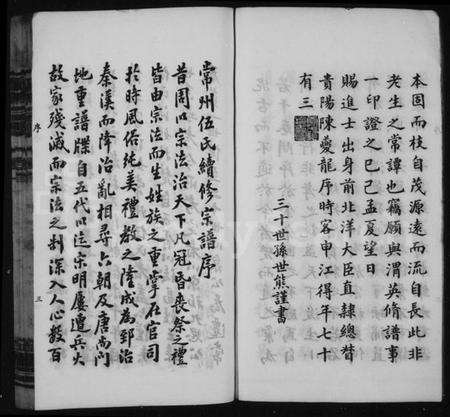 本固而枝自茂源遠而流自長此非
老生之常譚也竊願與渭英脩譜事
一印證之己巳孟夏望日
賜進士出身前北洋大臣直隸總督
貴陽陳夔龍序時客申江得年七十
有三
三十世孫世熊謹書
常州伍氏續修宗譜序
昔周以宗法治天下凡冠昏喪祭之禮
皆由宗法而生姓族之重掌在官司
於時風俗純美禮教之隆成為郅治
秦漢而降治亂相尋六朝及唐尚門
地重譜牒自五代以迄宋明屢遭兵火
故家殘滅而宗法之制深入人心數百
序
三